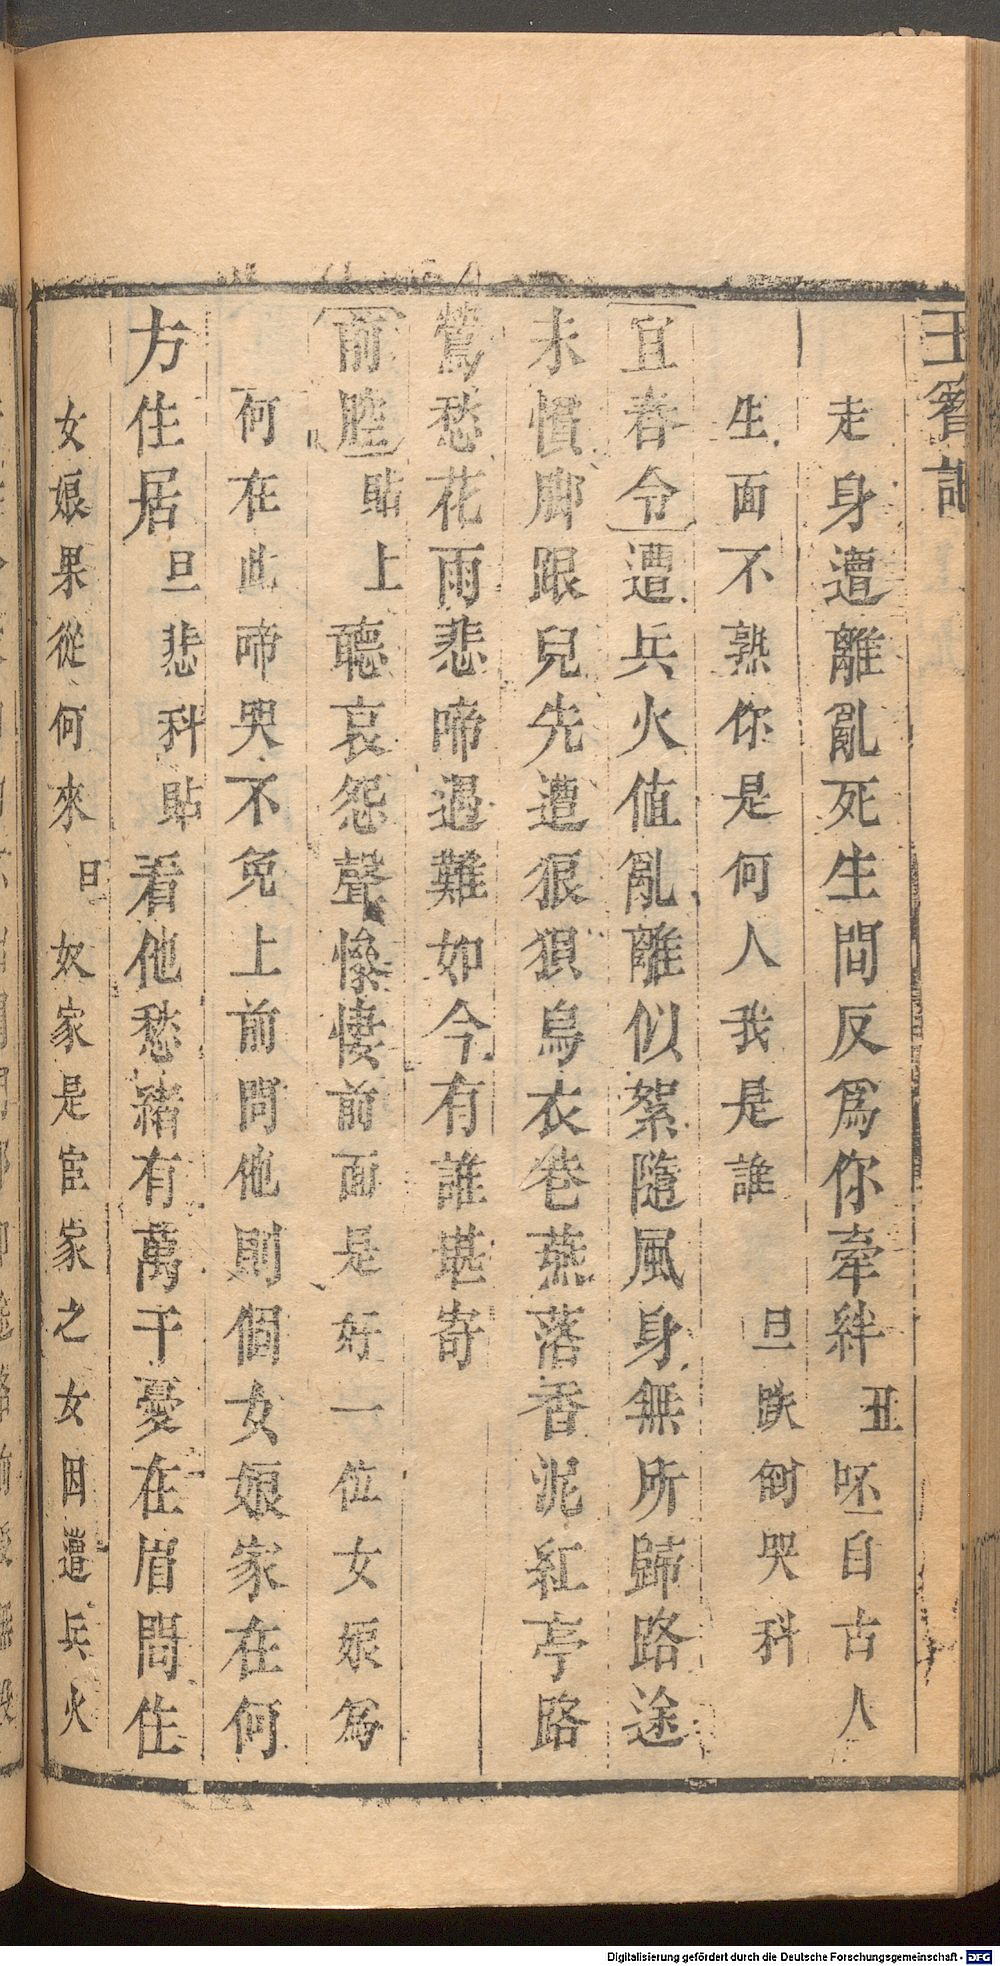 玉簪記
走身遭離亂死生間反爲你牽絆丑呸自古人
生面不熟你是何人我是誰旦跌倒哭科
宜春令遭兵火值亂離似絮隨風身無所歸路途
未慣脚跟兒先遭狠狽烏衣巷燕落香泥紅亭路
鶯愁花雨悲啼遇難如今有誰堪寄
前腔貼上聽哀怨聲慘悽前面是好一位女娘爲
何在此啼哭不免上前問他則個女娘家在何
方住居旦悲科貼看他愁緒有萬千憂在眉間住
女娘果從何來旦奴家是宦家之女因遭兵火
Digitalisierung gefördert durch die Deutsche Forschungsgemeinschaft - DFG